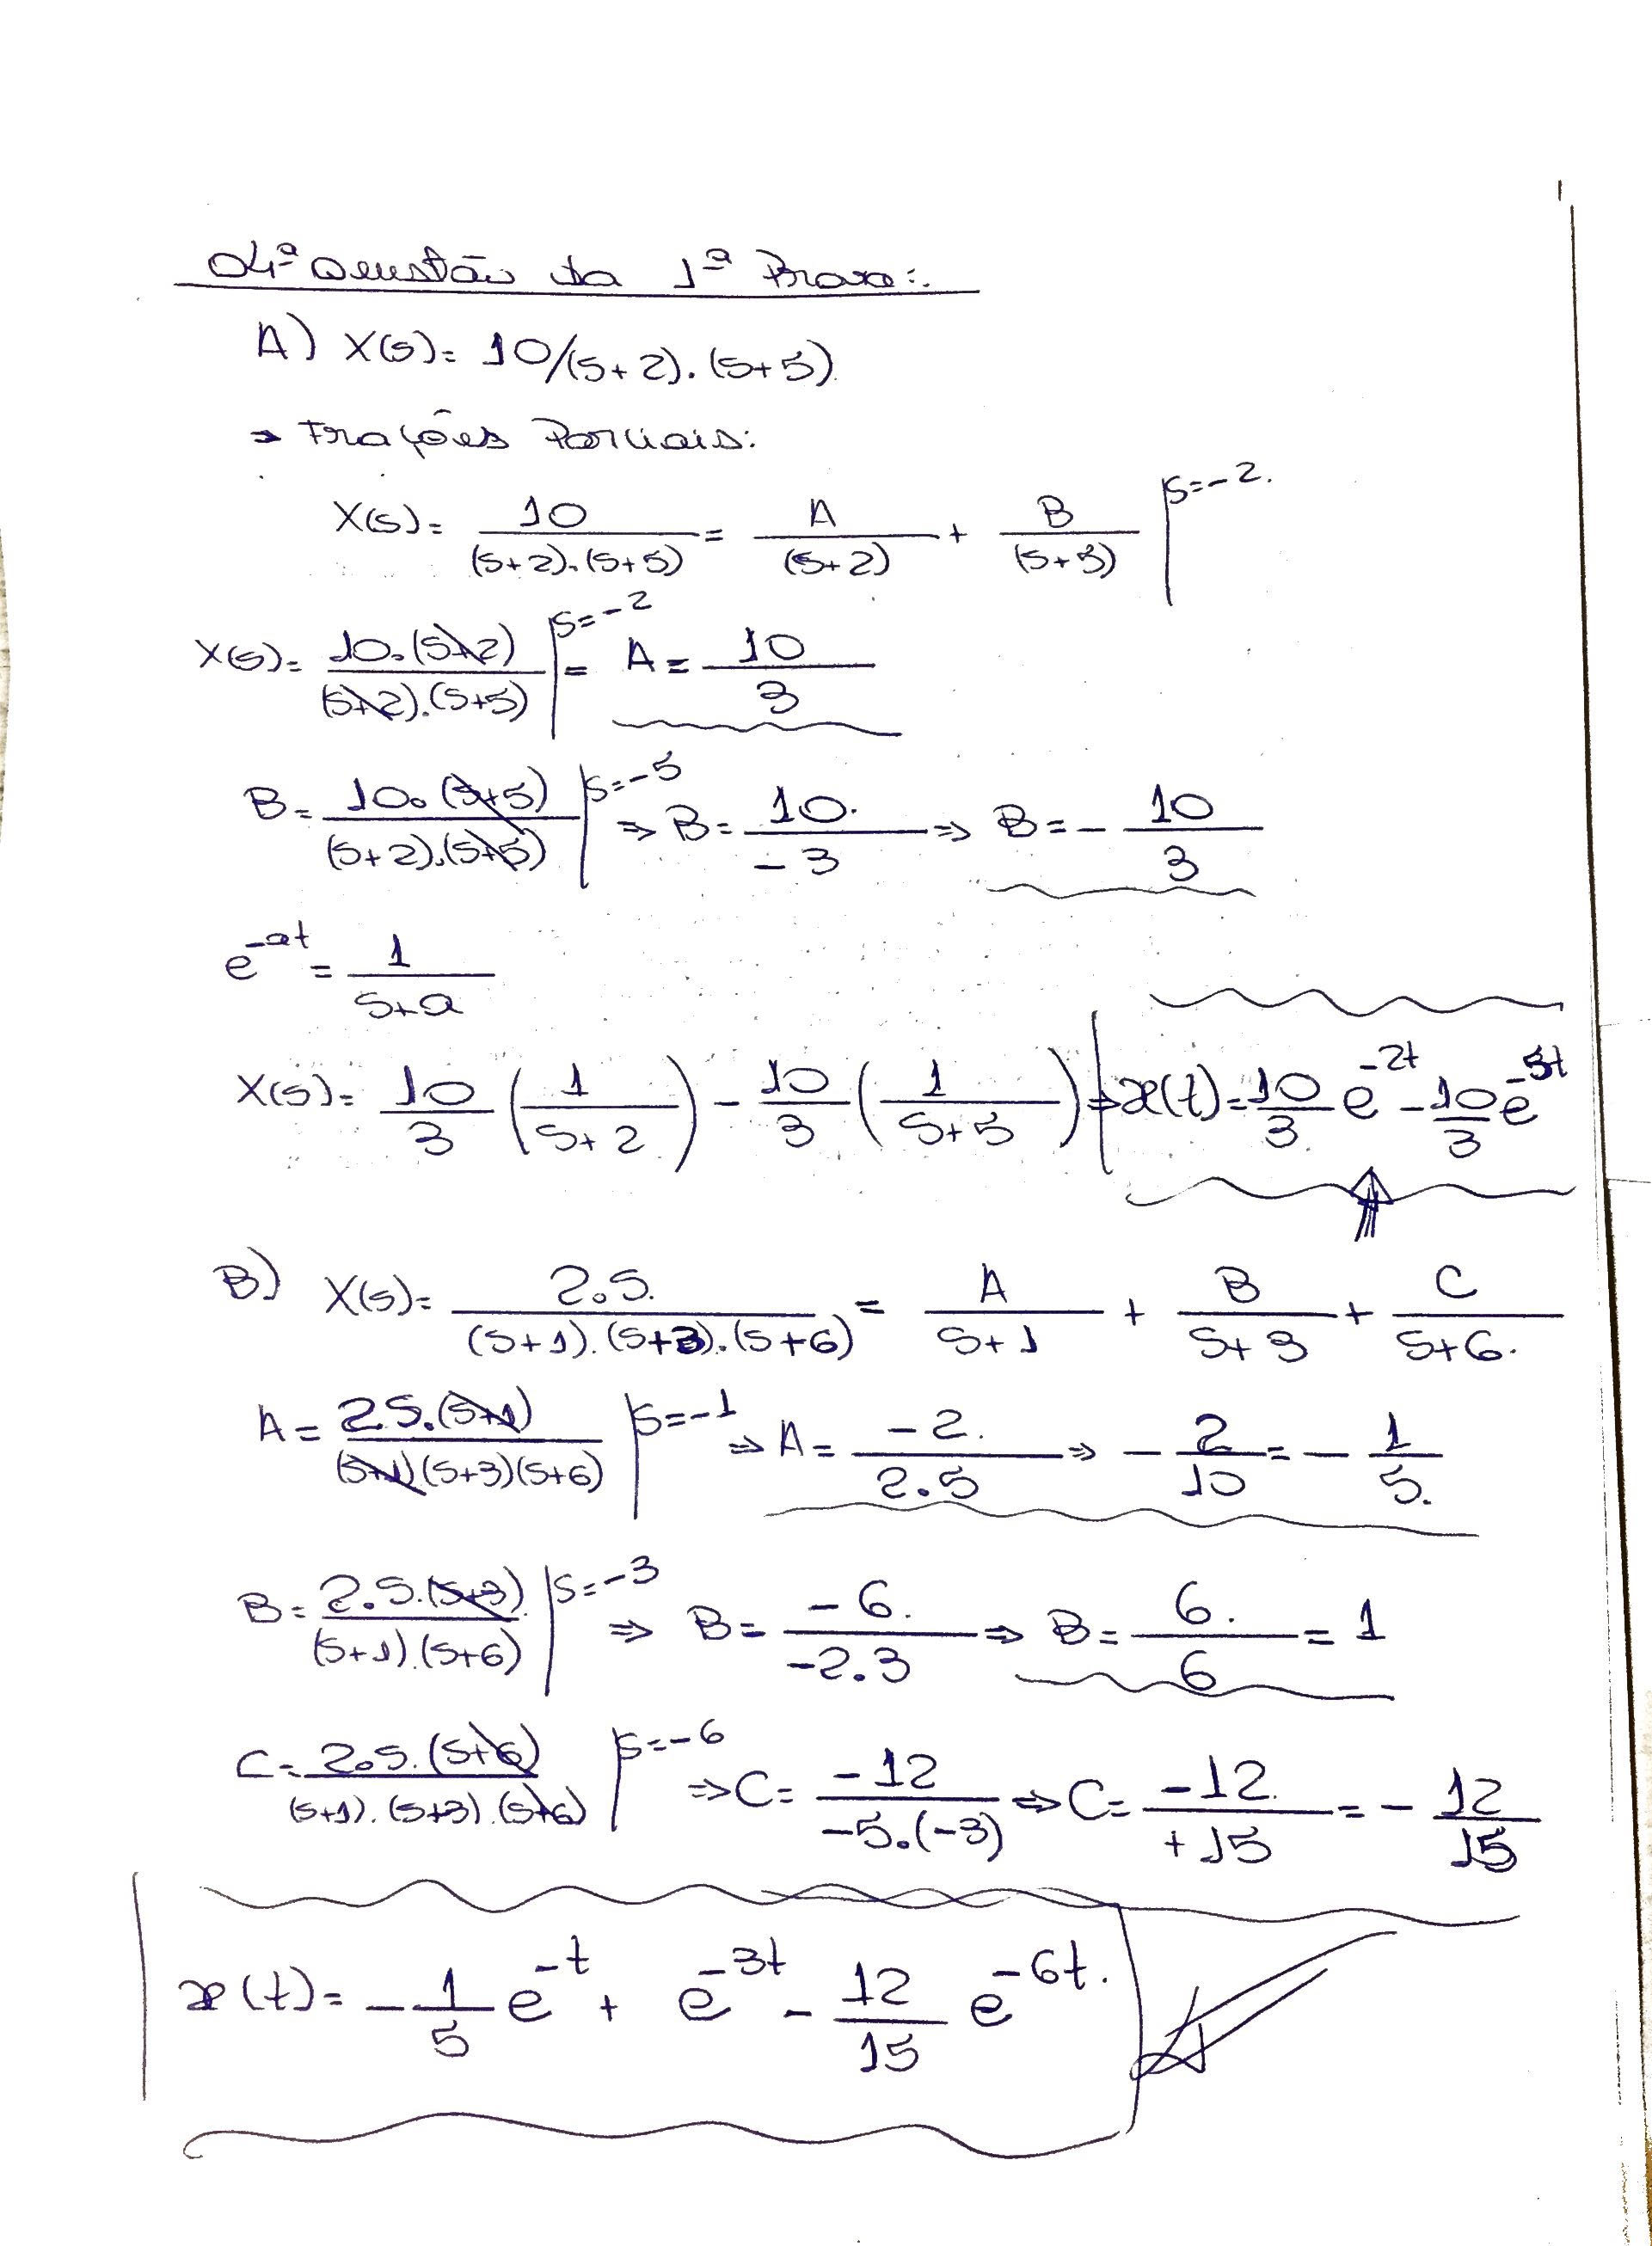 04ª Questão da 1ª Prova:.
A) X(s)= 10/(s+2).(s+5)
⇒ Frações Parciais:
X(s)= 10/(s+2).(s+5) = A/(s+2) + B/(s+5) | s=-2.
X(s)= 10.(s+2)/(s+2).(s+5) | s=-2 = A = 10/3
B= 10.(s+5)/(s+2).(s+5) | s=-5 ⇒ B= 10./-3 ⇒ B= - 10/3
e^-at = 1/s+a
X(s)= 10/3 (1/s+2) - 10/3 (1/s+5) ⇒ x(t)= 10/3 e^-2t - 10/3 e^-5t
B) X(s)= 2.s./(s+1).(s+3).(s+6) = A/s+1 + B/s+3 + C/s+6.
A= 2s.(s+1)/(s+1)(s+3)(s+6) | s=-1 ⇒ A= -2./2.5 ⇒ - 2/10 = - 1/5.
B= 2.s.(s+3)/(s+1).(s+6) | s=-3 ⇒ B= -6./-2.3 ⇒ B= 6./6 = 1
C= 2.s.(s+6)/(s+1).(s+3).(s+6) | s=-6 ⇒ C= -12/-5.(-3) ⇒ C= -12./+15 = - 12/15
x(t)= - 1/5 e^-t + e^-3t - 12/15 e^-6t.